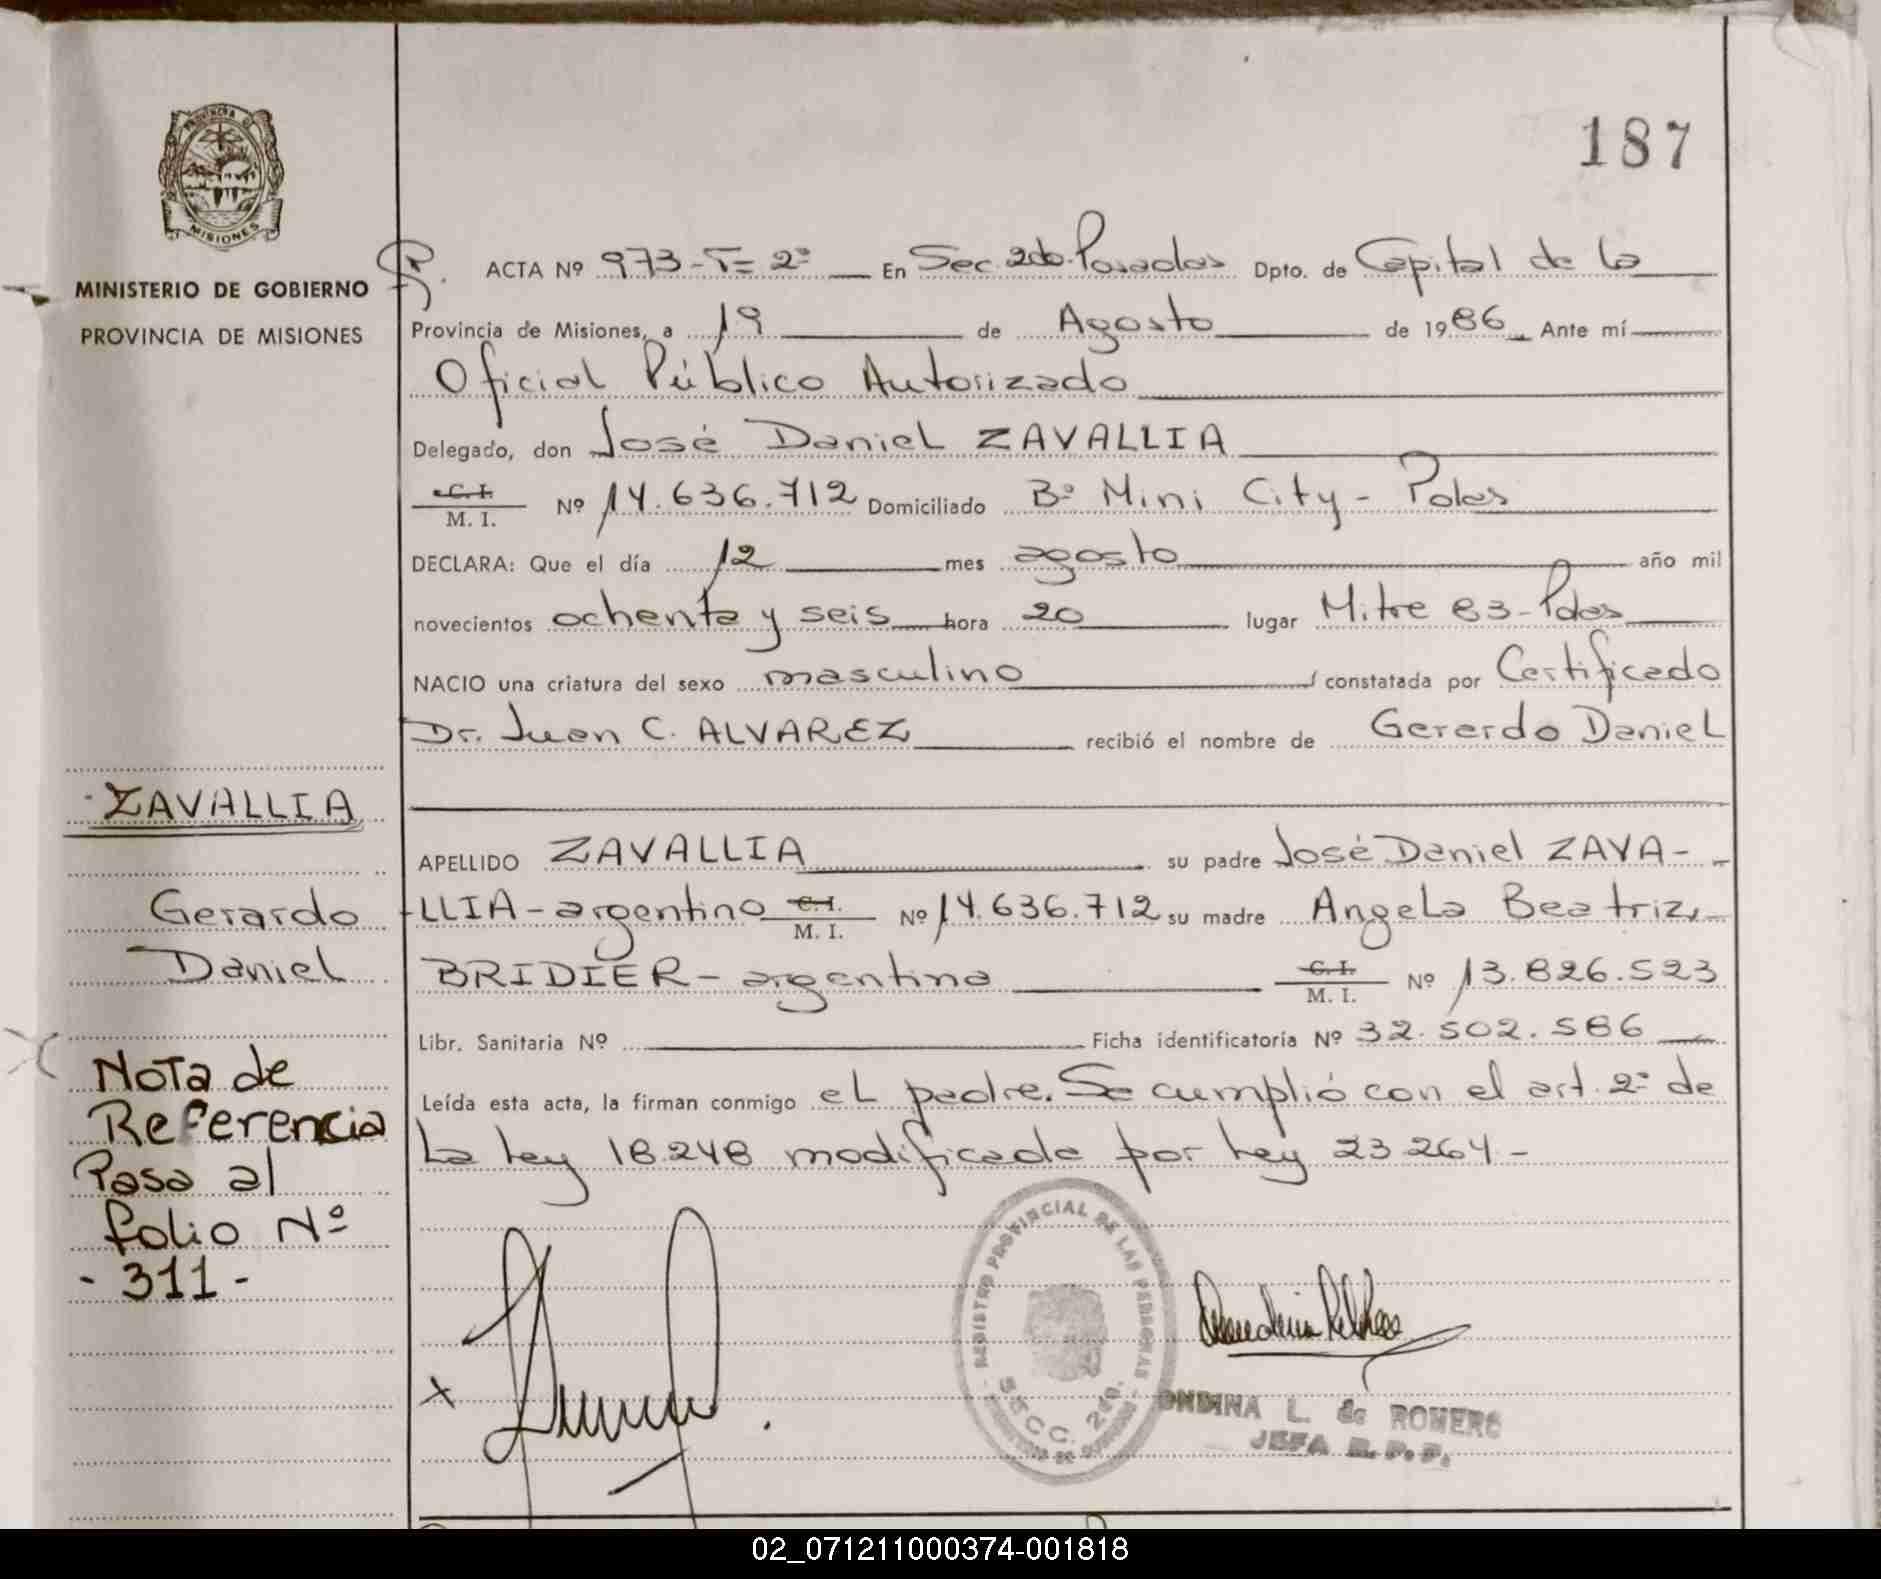 187
PROVINCIA DE
MISIONES
MINISTERIO DE GOBIERNO
PROVINCIA DE MISIONES
ACTA Nº 973-T= 2º En Sec. 2da. Posadas Dpto. de Capital de la
Provincia de Misiones, a 19 de Agosto de 1986 Ante mí
Oficial Público Autorizado
Delegado, don José Daniel ZAVALLIA
C.I.
M. I. Nº 14.636.712 Domiciliado Bº Mini City - Pdas
DECLARA: Que el día 12 mes agosto año mil
novecientos ochenta y seis hora 20 lugar Mitre 83-Pdas
NACIO una criatura del sexo masculino constatada por Certificado
Dr. Juan C. ALVAREZ recibió el nombre de Gerardo Daniel
ZAVALLIA
Gerardo
Daniel
APELLIDO ZAVALLIA su padre José Daniel ZAVA-
LLIA - argentino C.I.
M. I. Nº 14.636.712 su madre Angela Beatriz
BRIDIER - argentina C.I.
M. I. Nº 13.826.523
Libr. Sanitaria Nº Ficha identificatoria Nº 32.502.586
Nota de
Referencia
Pasa al
folio Nº
- 311 -
Leída esta acta, la firman conmigo el padre. Se cumplió con el art. 2º de
la ley 18.248 modificada por ley 23.264 -
REGISTRO PROVINCIAL DE LAS PERSONAS
SECC. 2da.
ONDINA L. de ROMERO
JEFA R.P.P.
02_071211000374-001818